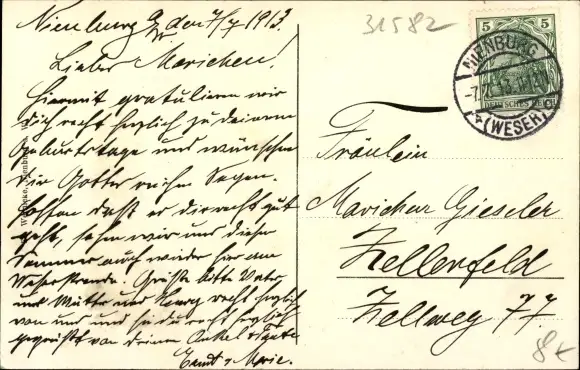 Nienburg a/W. den 7/7 1913.
Liebes Mariechen!
Hiermit gratulieren wir
dich recht herzlich zu deinem
Geburtstage und wünschen
dir Gottes reichen Segen.
Hoffen daß es dir recht gut
geht, sehen wir uns diesen
Sommer auch wieder hier am
Weserstrande. Grüße bitte Vater
und Mutter und recht herzlich
von uns und sei du recht herzlich
gegrüßt von deinem Onkel u Tante
Ernst u Marie.
31582
5 5
DEUTSCHES REICH
NIENBURG
-7.7.13.
* (WESER)
Fräulein
Mariechen Gieseler
Zellerfeld
Zellweg 77.
8x